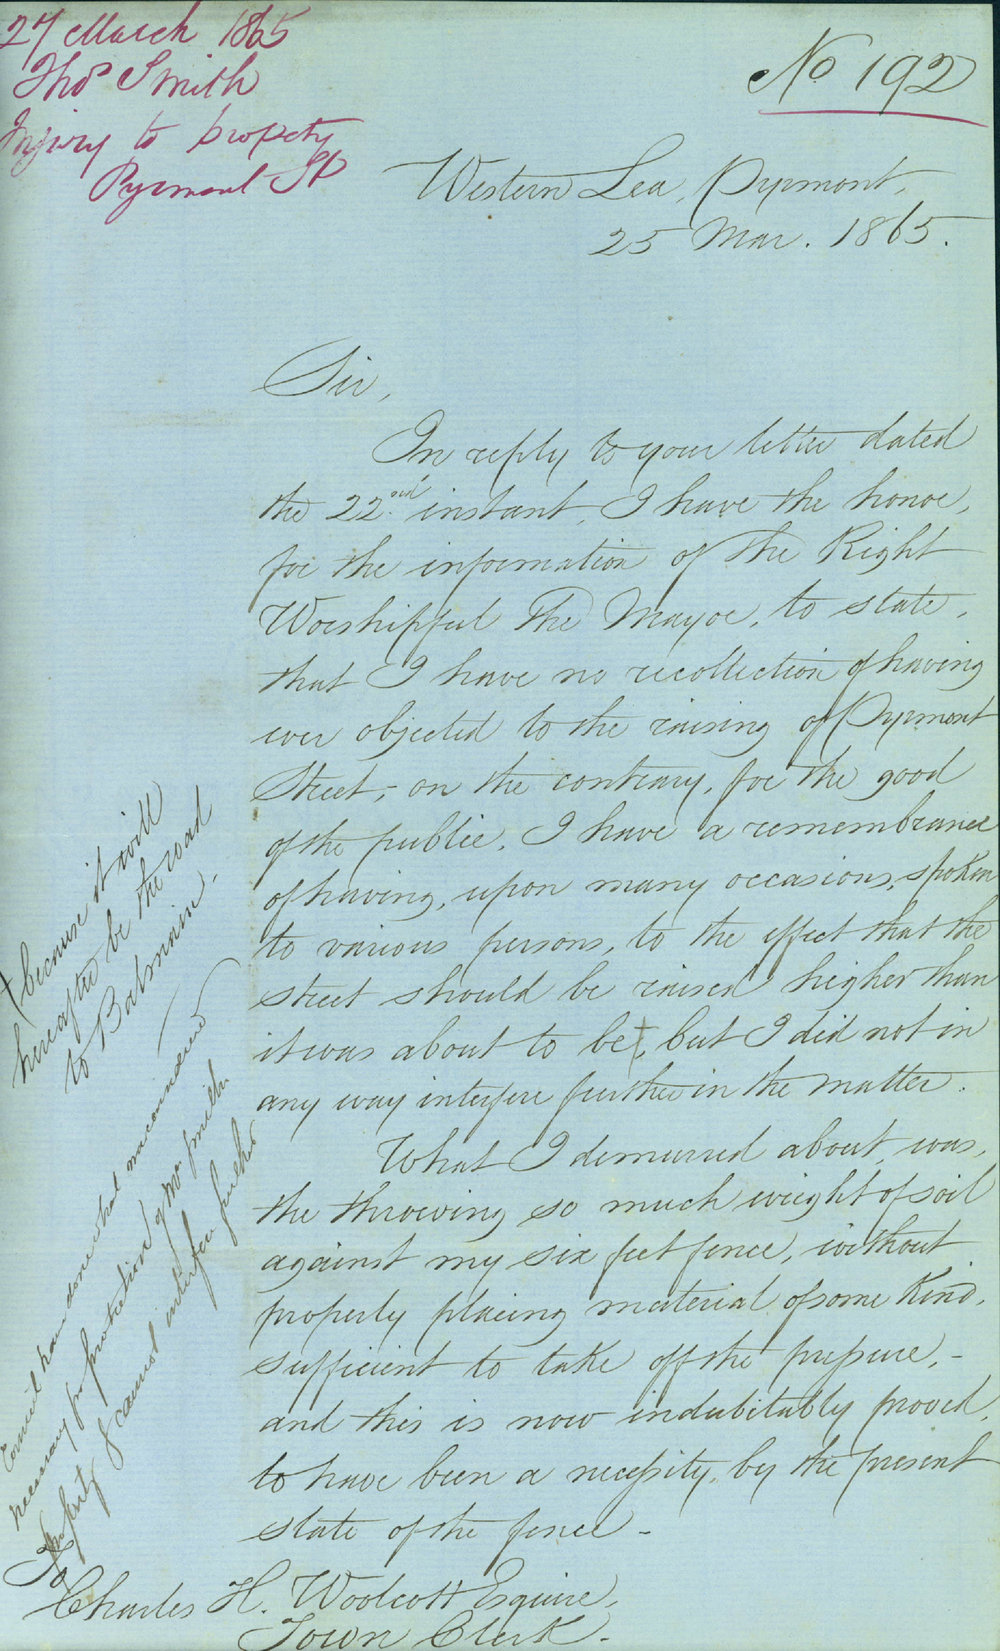 27 March 1865
Thos Smith
Injury to property
Pyrmont St
No 192
Western Lea, Pyrmont,
25 Mar. 1865.
Sir,
In reply to your letter dated
the 22nd instant, I have the honor,
for the information of The Right
Worshipful The Mayor, to state,
that I have no recollection of having
ever objected to the raising of Pyrmont
Street,- on the contrary, for the good
of the public, I have a remembrance
of having, upon many occasions, spoken
to various persons, to the effect that the
street should be raised higher than
it was about to be, but I did not in
any way interfere further in the matter.
What I demurred about, was,
the throwing so much weight of soil
against my six feet fence, without
properly placing material, of some kind,
sufficient to take off the pressure,-
and this is now indubitably proved,
to have been a necessity, by the present
state of the fence -
To
Charles H. Woolcott Esquire,
Town Clerk.
because it will
hereafter be the road
to Balmain.
Council have done what was considered
necessary for protection of Mr Smiths
Property & cannot interfere further